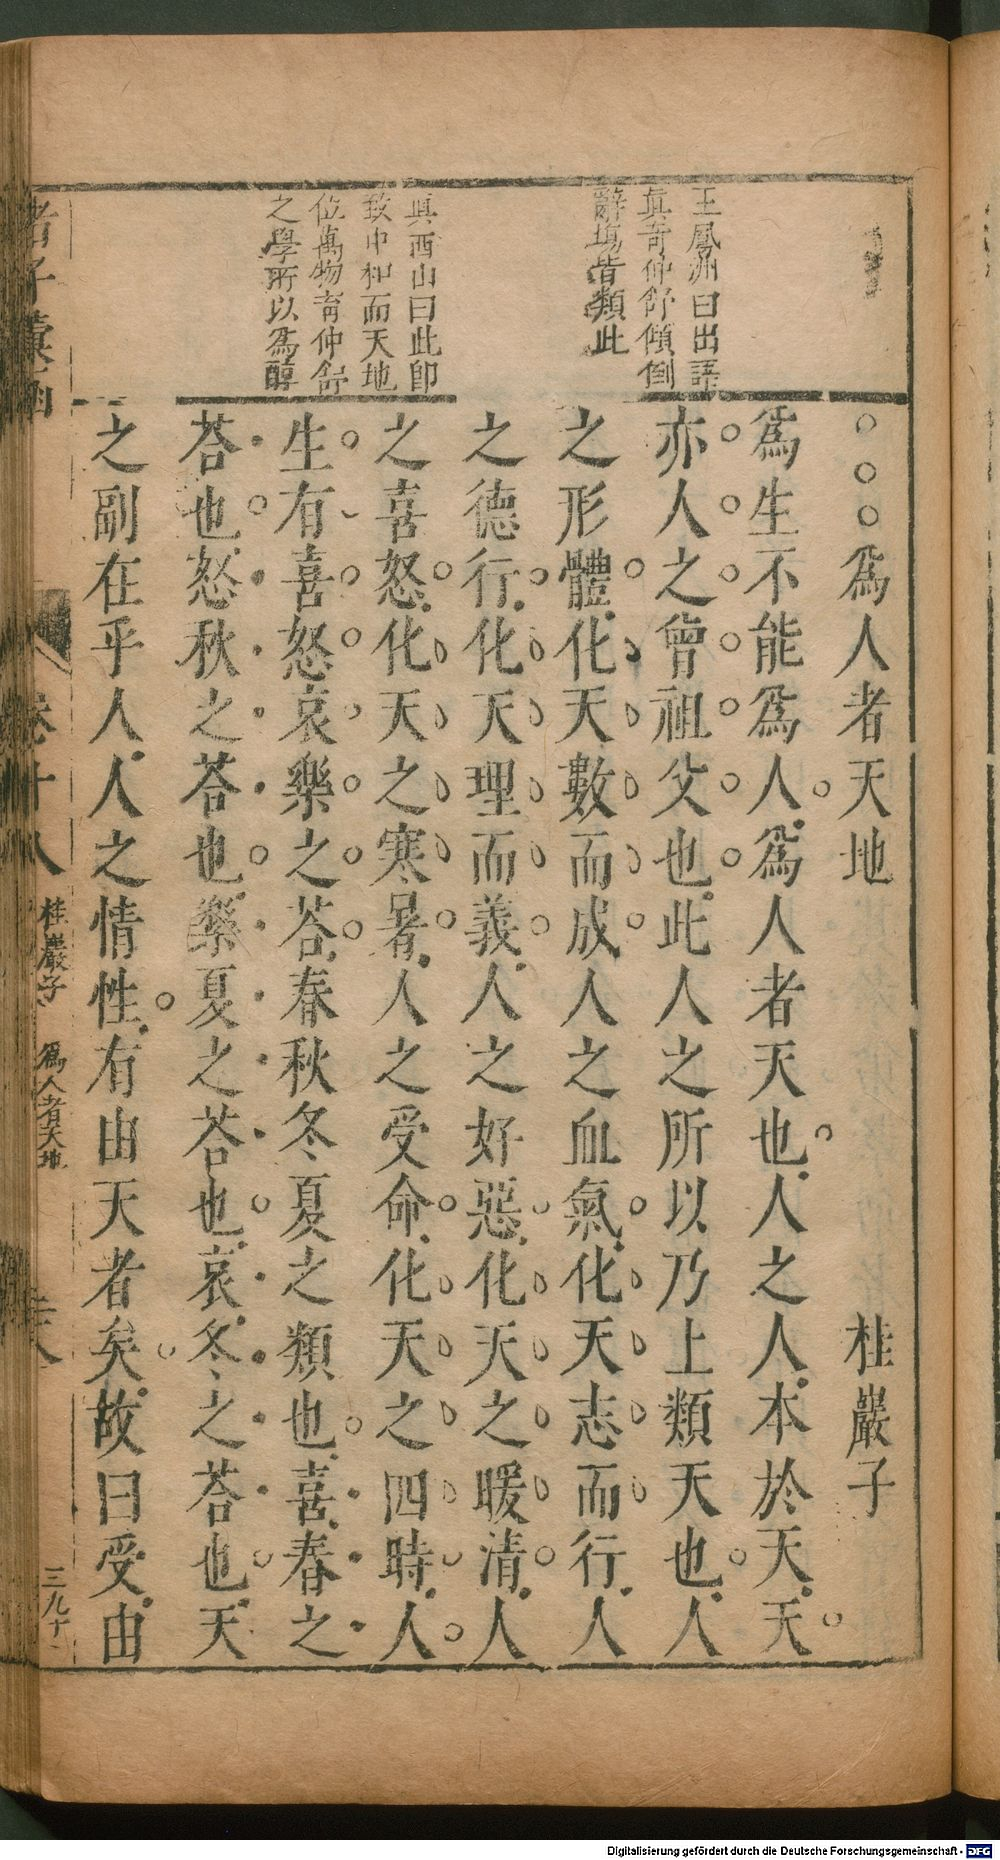 王鳳洲曰出語
真奇仲舒傾倒
辭塲皆類此
真西山曰此卽
致中和而天地
位萬物育仲舒
之學所以爲醇
○○○爲人者天地 桂巖子
爲生不能爲人爲人者天也人之人本於天天
亦人之曾祖父也此人之所以乃上類天也人
之形體化天數而成人之血氣化天志而行人
之德行化天理而義人之好惡化天之暖清人
之喜怒化天之寒暑人之受命化天之四時人
生有喜怒哀樂之荅春秋冬夏之類也喜春之
荅也怒秋之荅也樂夏之荅也哀冬之荅也天
之副在乎人人之情性有由天者矣故曰受由
卷十八
桂巖子 爲人者天地
Digitalisierung gefördert durch die Deutsche Forschungsgemeinschaft - DFG